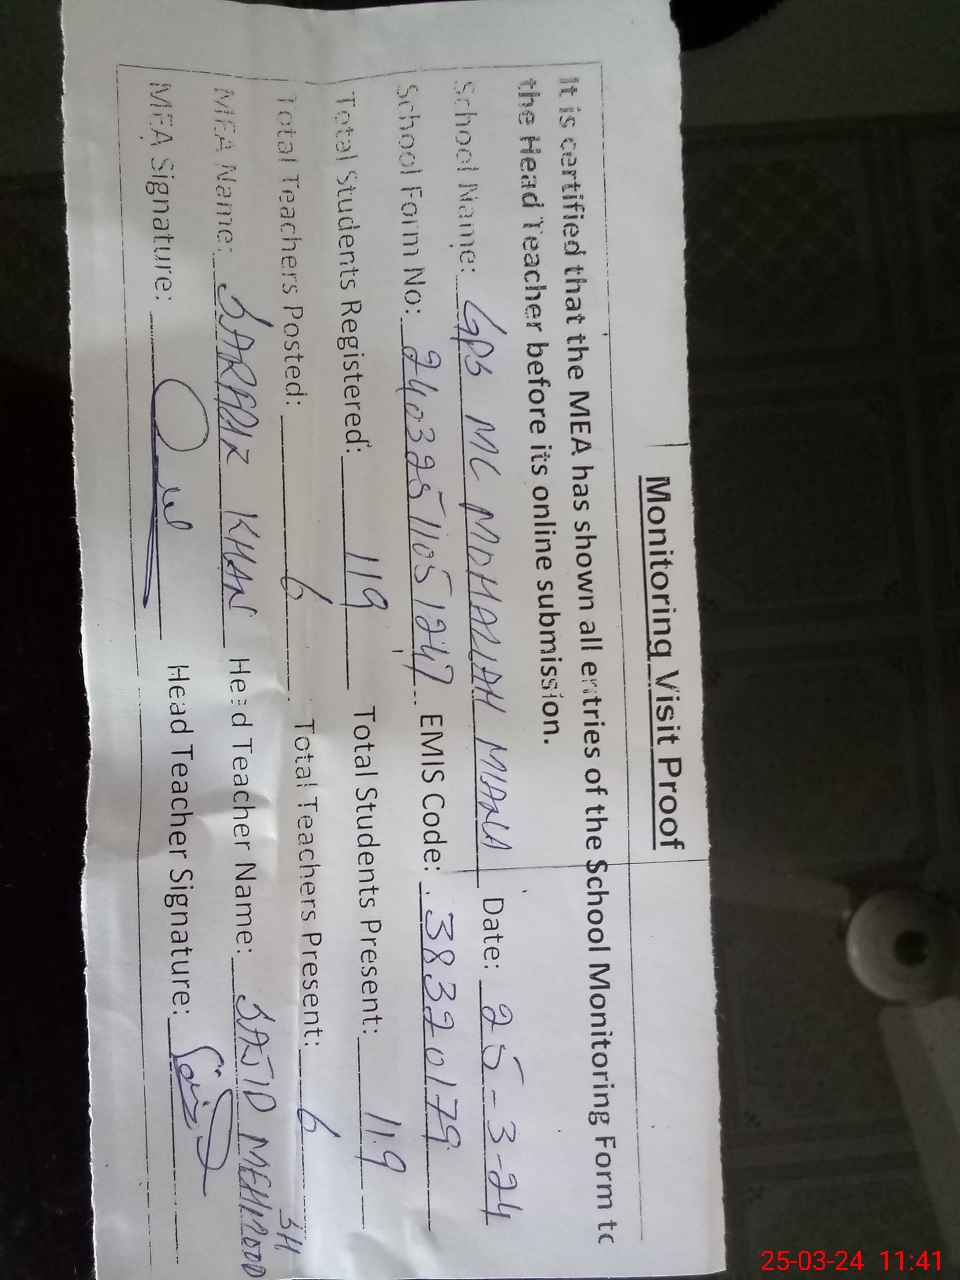 Monitoring Visit Proof
It is certified that the MEA has shown all entries of the School Monitoring Form to
the Head Teacher before its online submission.
School Name: GPS MC MOHALLAH MIANA Date: 25-3-24
School Form No: 24032511051247 EMIS Code: 38320179
Total Students Registered: 119 Total Students Present: 119
Total Teachers Posted: 6 Total Teachers Present: 6
MEA Name: KHAN Head Teacher Name: SAJID MEHMOOD
MEA Signature: Head Teacher Signature:
25-03-24 11:41